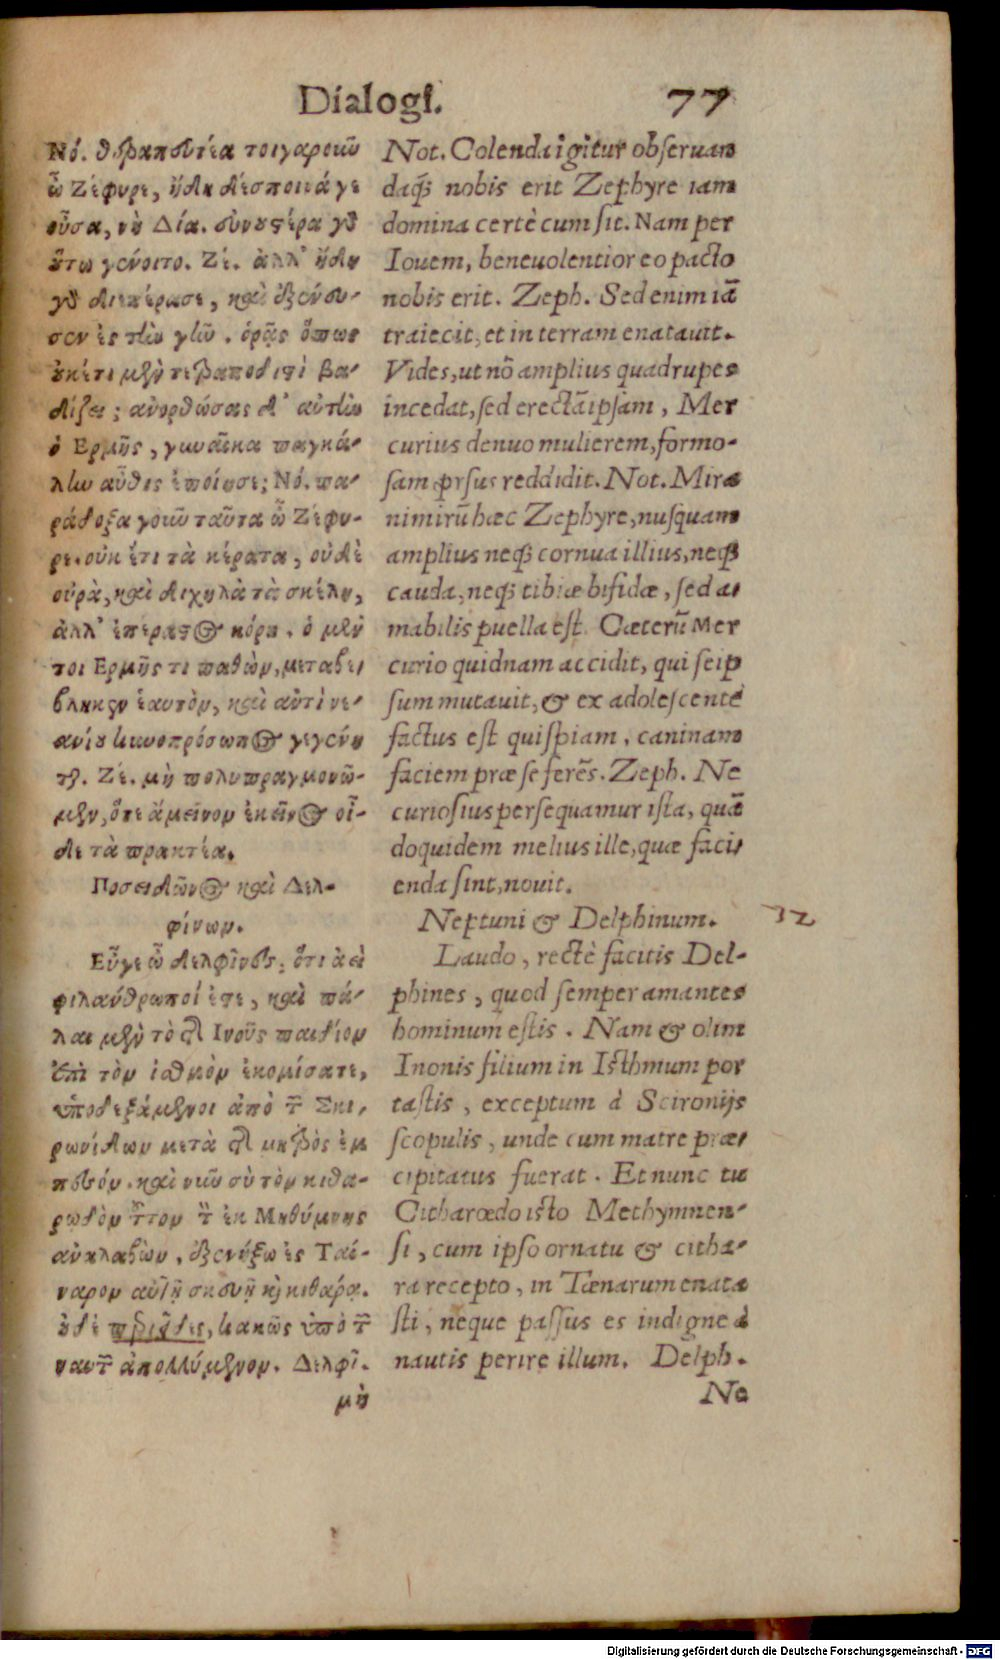 Dialogi.
77
Νό. θεραπευτέα τοιγαροιῶ
ὦ Ζέφυρε, ἤδη δέσποινά γε
οὖσα, νὴ Δία. εὐνουστέρα γδ
ὅτω γένοιτο. Ζέ. ἀλλ' ἤδη
γδ διεπέρασε, καὶ ἐξένευ-
σεν ἐς τὴν γῆν. ὁρᾷς ὅπως
οὐκέτι μὲν τετραποδιστὶ βα-
δίζει; ἀνορθώσας δ' αὐτὴν
ὁ Ερμῆς, γυναῖκα παγκά-
λην αὖθις ἐποίησε; Νό. πα-
ράδοξα γοιῶ ταῦτα ὦ Ζέφυ-
ρε. οὐκ ἔτι τὰ κέρατα, οὐδὲ
οὐρὰ, καὶ διχηλὰ τὰ σκέλη,
ἀλλ' ἐπέραστος κόρη. ὁ μέν
τοι Ερμῆς τι παθὼν, μεταβέ-
βληκεν ἑαυτὸν, καὶ αὐτὶ νε-
ανίου κυνοπρόσωπος γεγένη
τζ. Ζέ. μὴ πολυπραγμονῶ-
μεν, ὅτε ἄμεινον ἐκεῖνος οἶ-
δε τὰ πρακτέα.
Ποσειδῶνος καὶ Δελ-
φίνων.
Εὖγε ὦ δελφῖνες, ὅτι ἀεὶ
φιλάνθρωποί ἐστε, καὶ πά-
λαι μὲν τὸ τῆς Ινοῦς παιδίον
ἐπὶ τὸν ἰσθμὸν ἐκομίσατε,
ὑποδεξάμενοι ἀπὸ τῶν Σκι-
ρωνίδων μετὰ τῆς μητρὸς ἐμ
πεσόν. καὶ νιῶ σὺ τὸν κιθα-
ρῳδὸν τοῦτον τὸν ἐκ Μηθύμνης
ἀναλαβὼν, ἐξενήξω ἐς Ταί-
ναρον αὐτῇ σκευῇ κὶ κιθάρα.
οὐδὲ περιεῖδες, κακῶς ὑπὸ τῶν
ναυτῶν ἀπολλύμενον. Δελφῖ.
μὴ
Not. Colenda igitur obseruan
daq́; nobis erit Zephyre iam
domina certè cum sit. Nam per
Iouem, beneuolentior eo pacto
nobis erit. Zeph. Sed enim iã
traiecit, et in terram enatauit.
Vides, ut nõ amplius quadrupes
incedat, sed erectã ipsam, Mer
curius denuo mulierem, formo-
sam prsus reddidit. Not. Mira
nimirũ hæc Zephyre, nusquam
amplius neq́; cornua illius, neq́;
cauda, neq́; tibiæ bifidæ, sed a-
mabilis puella est. Cæterũ Mer
curio quidnam accidit, qui seip
sum mutauit, & ex adolescente
factus est quispiam, caninam
faciem præ se ferẽs. Zeph. Ne
curiosius persequamur ista, quã
doquidem melius ille, quæ faci-
enda sint, nouit.
Neptuni & Delphinum.
32
Laudo, rectè facitis Del-
phines, quod semper amantes
hominum estis. Nam & olim
Inonis filium in Isthmum por
tastis, exceptum à Scironijs
scopulis, unde cum matre præ-
cipitatus fuerat. Et nunc tu
Citharœdo isto Methymnen-
si, cum ipso ornatu & citha-
ra recepto, in Tænarum enata
sti, neque passus es indigne à
nautis perire illum. Delph.
Ne
Digitalisierung gefördert durch die Deutsche Forschungsgemeinschaft - DFG